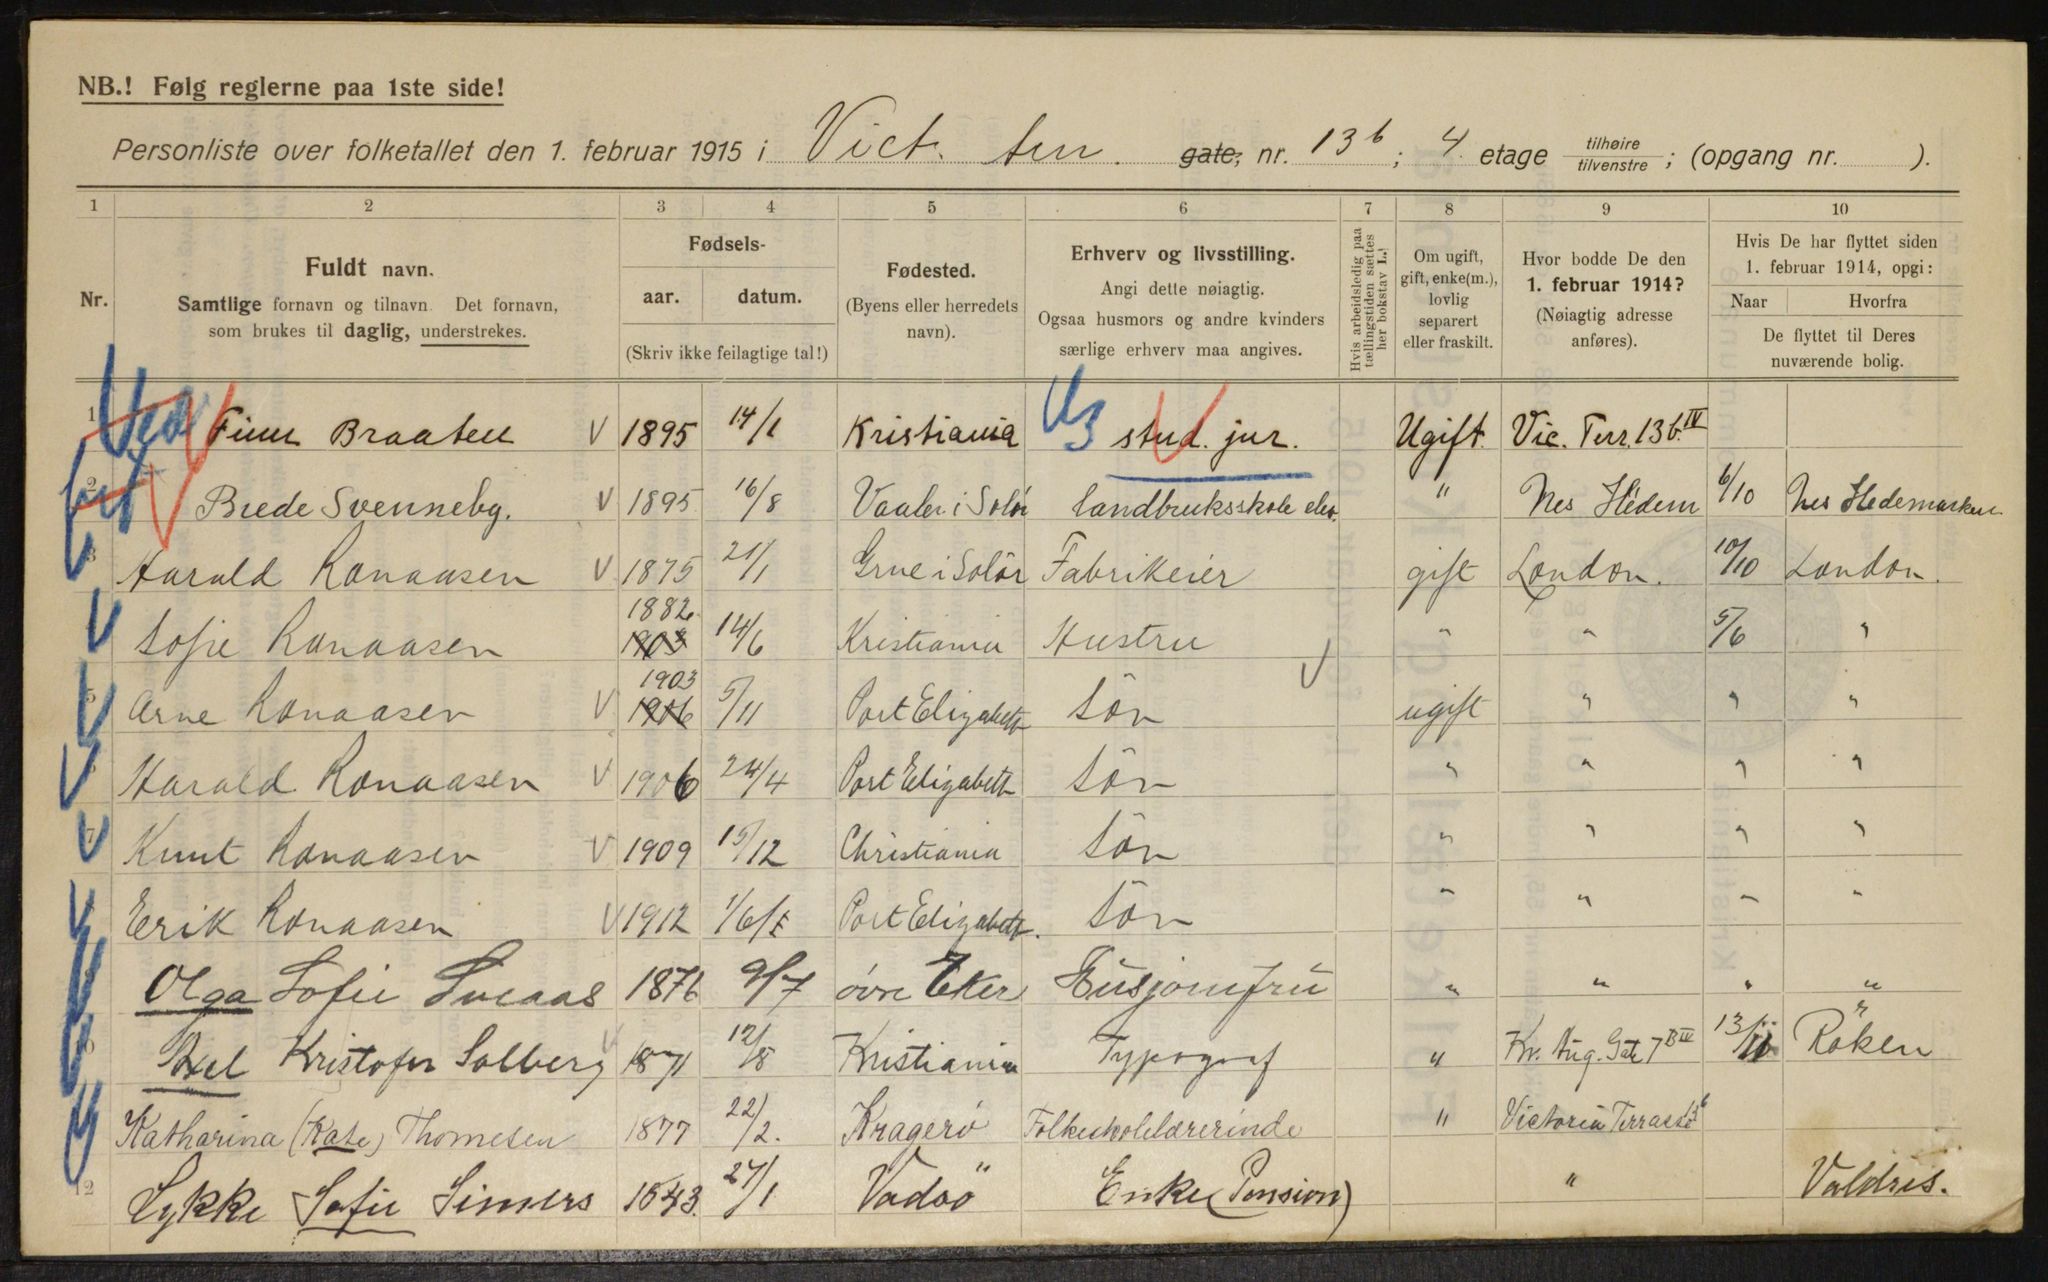 NB.! Følg reglerne paa 1ste side!
Personliste over folketallet den 1. februar 1915 i Vict. terr. gate, nr. 13 b ; 4 etage tilhøire / tilvenstre ; (opgang nr. ).
1 2 3 4 5 6 7 8 9 10
Nr.
Fuldt navn.
Samtlige fornavn og tilnavn. Det fornavn,
som brukes til daglig, understrekes.
Fødsels-
aar. datum.
(Skriv ikke feilagtige tal!)
Fødested.
(Byens eller herredets
navn).
Erhverv og livsstilling.
Angi dette nøiagtig.
Ogsaa husmors og andre kvinders
særlige erhverv maa angives.
Hvis arbeidsledig paa
tællingstiden sættes
her bokstav L.!
Om ugift,
gift, enke(m.),
lovlig
separert
eller fraskilt.
Hvor bodde De den
1. februar 1914?
(Nøiagtig adresse
anføres).
Hvis De har flyttet siden
1. februar 1914, opgi:
Naar Hvorfra
De flyttet til Deres
nuværende bolig.
1 Finn Braaten V 1895 14/1 Kristiania stud. jur. Ugift Vic. Terr. 13 b. IV
2 Brede Svenneby. V 1895 16/8 Vaaler i Solör landbruksskole elev. " Nes Hedem 6/10 Nes Hedemarken
3 Harald Ronaasen V 1875 21/1 Grue i Solör Fabrikeier gift London. 10/10 London.
Sofie Ronaasen 1882 14/6 Kristiania Hustru " " 5/6 "
5 Arne Ronaasen V 1903 1906 5/11 Port Elizabeth Sön ugift " " "
Harald Ronaasen V 1906 24/4 Port Elizabeth Sön " " " "
7 Knut Ronaasen V 1909 15/12 Christiania Sön " " " "
Erik Ronaasen V 1912 Port Elizabeth. Sön " " " "
Olga Sofie 1876 9/7 övre Eker Husjomfru " " " "
Axel Kristofer Solberg 1871 12/8 Kristiania Typograf " Kr. Aug. Gate 7 B IV 13/11 Röken
Katharina (Kate) Thomesen 1877 22/2. Kragerö Folkeskolelærerinde " Victoria Terrasse 13 b
12 Lykke Sofie Simers 1843. 27/1 Vadsö Enke (Pension) " Valdres.